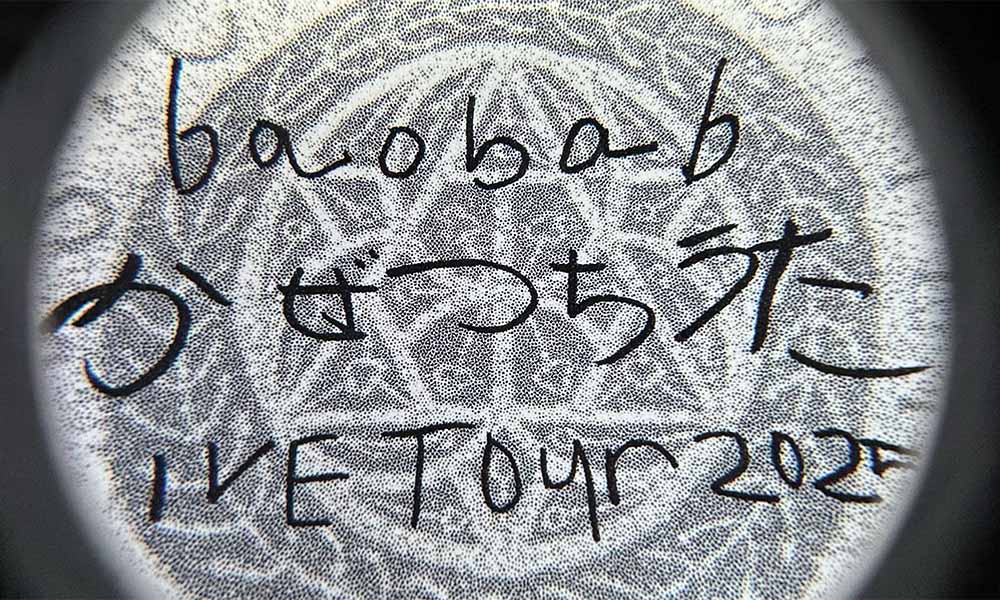 baobab
かぜつちうた
LIVE Tour 2025